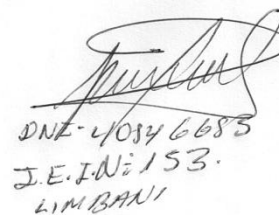 DNI-40846685
I.E.I.N: 153.
LIMBANI